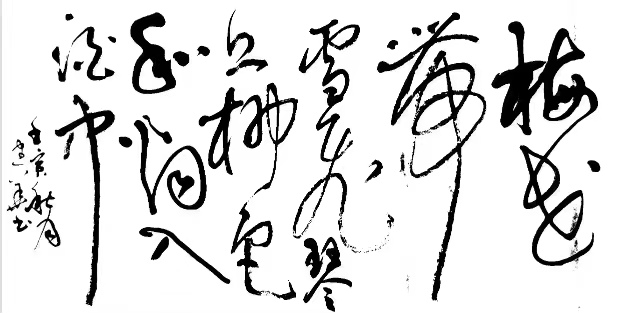 梅花
帶
雪飛琴
上柳色
和烟入
酒中
壬寅秋月
书